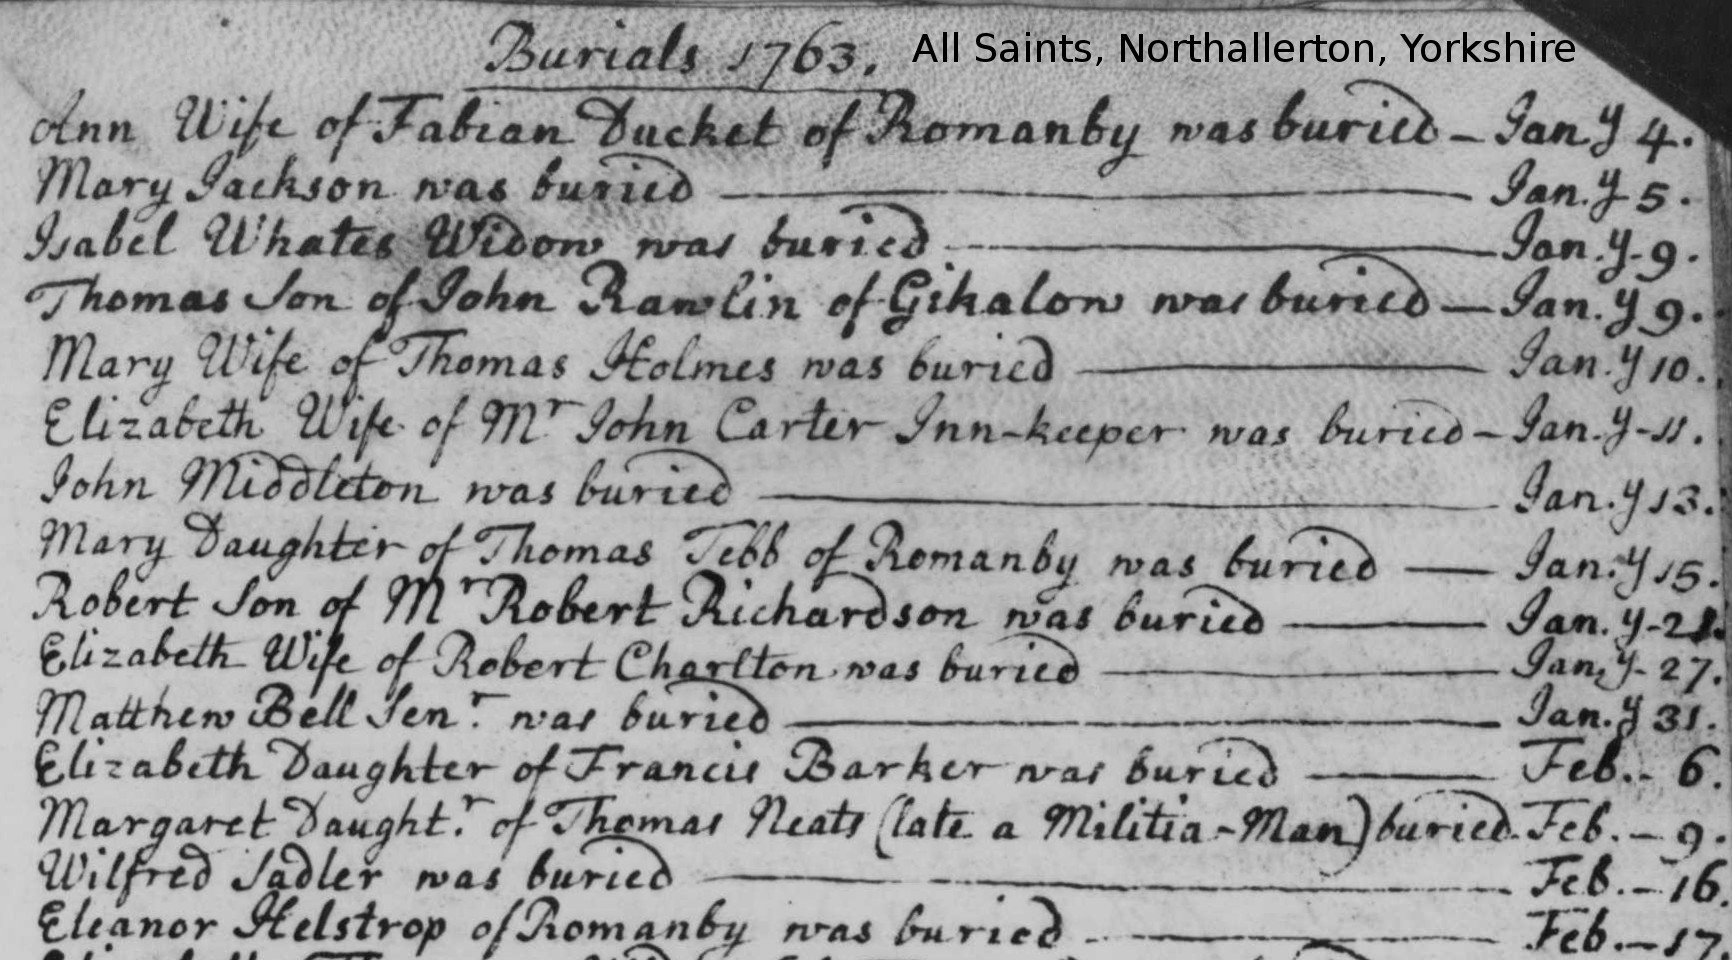 Burials 1763. All Saints, Northallerton, Yorkshire
Ann Wife of Fabian Ducket of Romanby was buried – Jan.y 4.
Mary Jackson was buried — Jan.y 5.
Isabel Whates Widow was buried — Jan.y - 9.
Thomas Son of John Rawlin of Gikalow was buried — Jan.y 9.
Mary Wife of Thomas Holmes was buried — Jan.y 10.
Elizabeth Wife of Mr John Carter Inn-keeper was buried – Jan.y - 11.
John Middleton was buried — Jan.y 13.
Mary Daughter of Thomas Tebb of Romanby was buried — Jan.y 15.
Robert Son of Mr Robert Richardson was buried — Jan.y -
Elizabeth Wife of Robert Charlton was buried — Jan.y - 27.
Matthew Bell Sen.r was buried — Jan.y 31.
Elizabeth Daughter of Francis Barker was buried — Feb. - 6.
Margaret Daught.r of Thomas Neats (late a Militia-Man) buried. Feb. – 9.
Wilfred Sadler was buried — Feb. – 16.
Eleanor Helstrop of Romanby was buried — Feb. – 17.